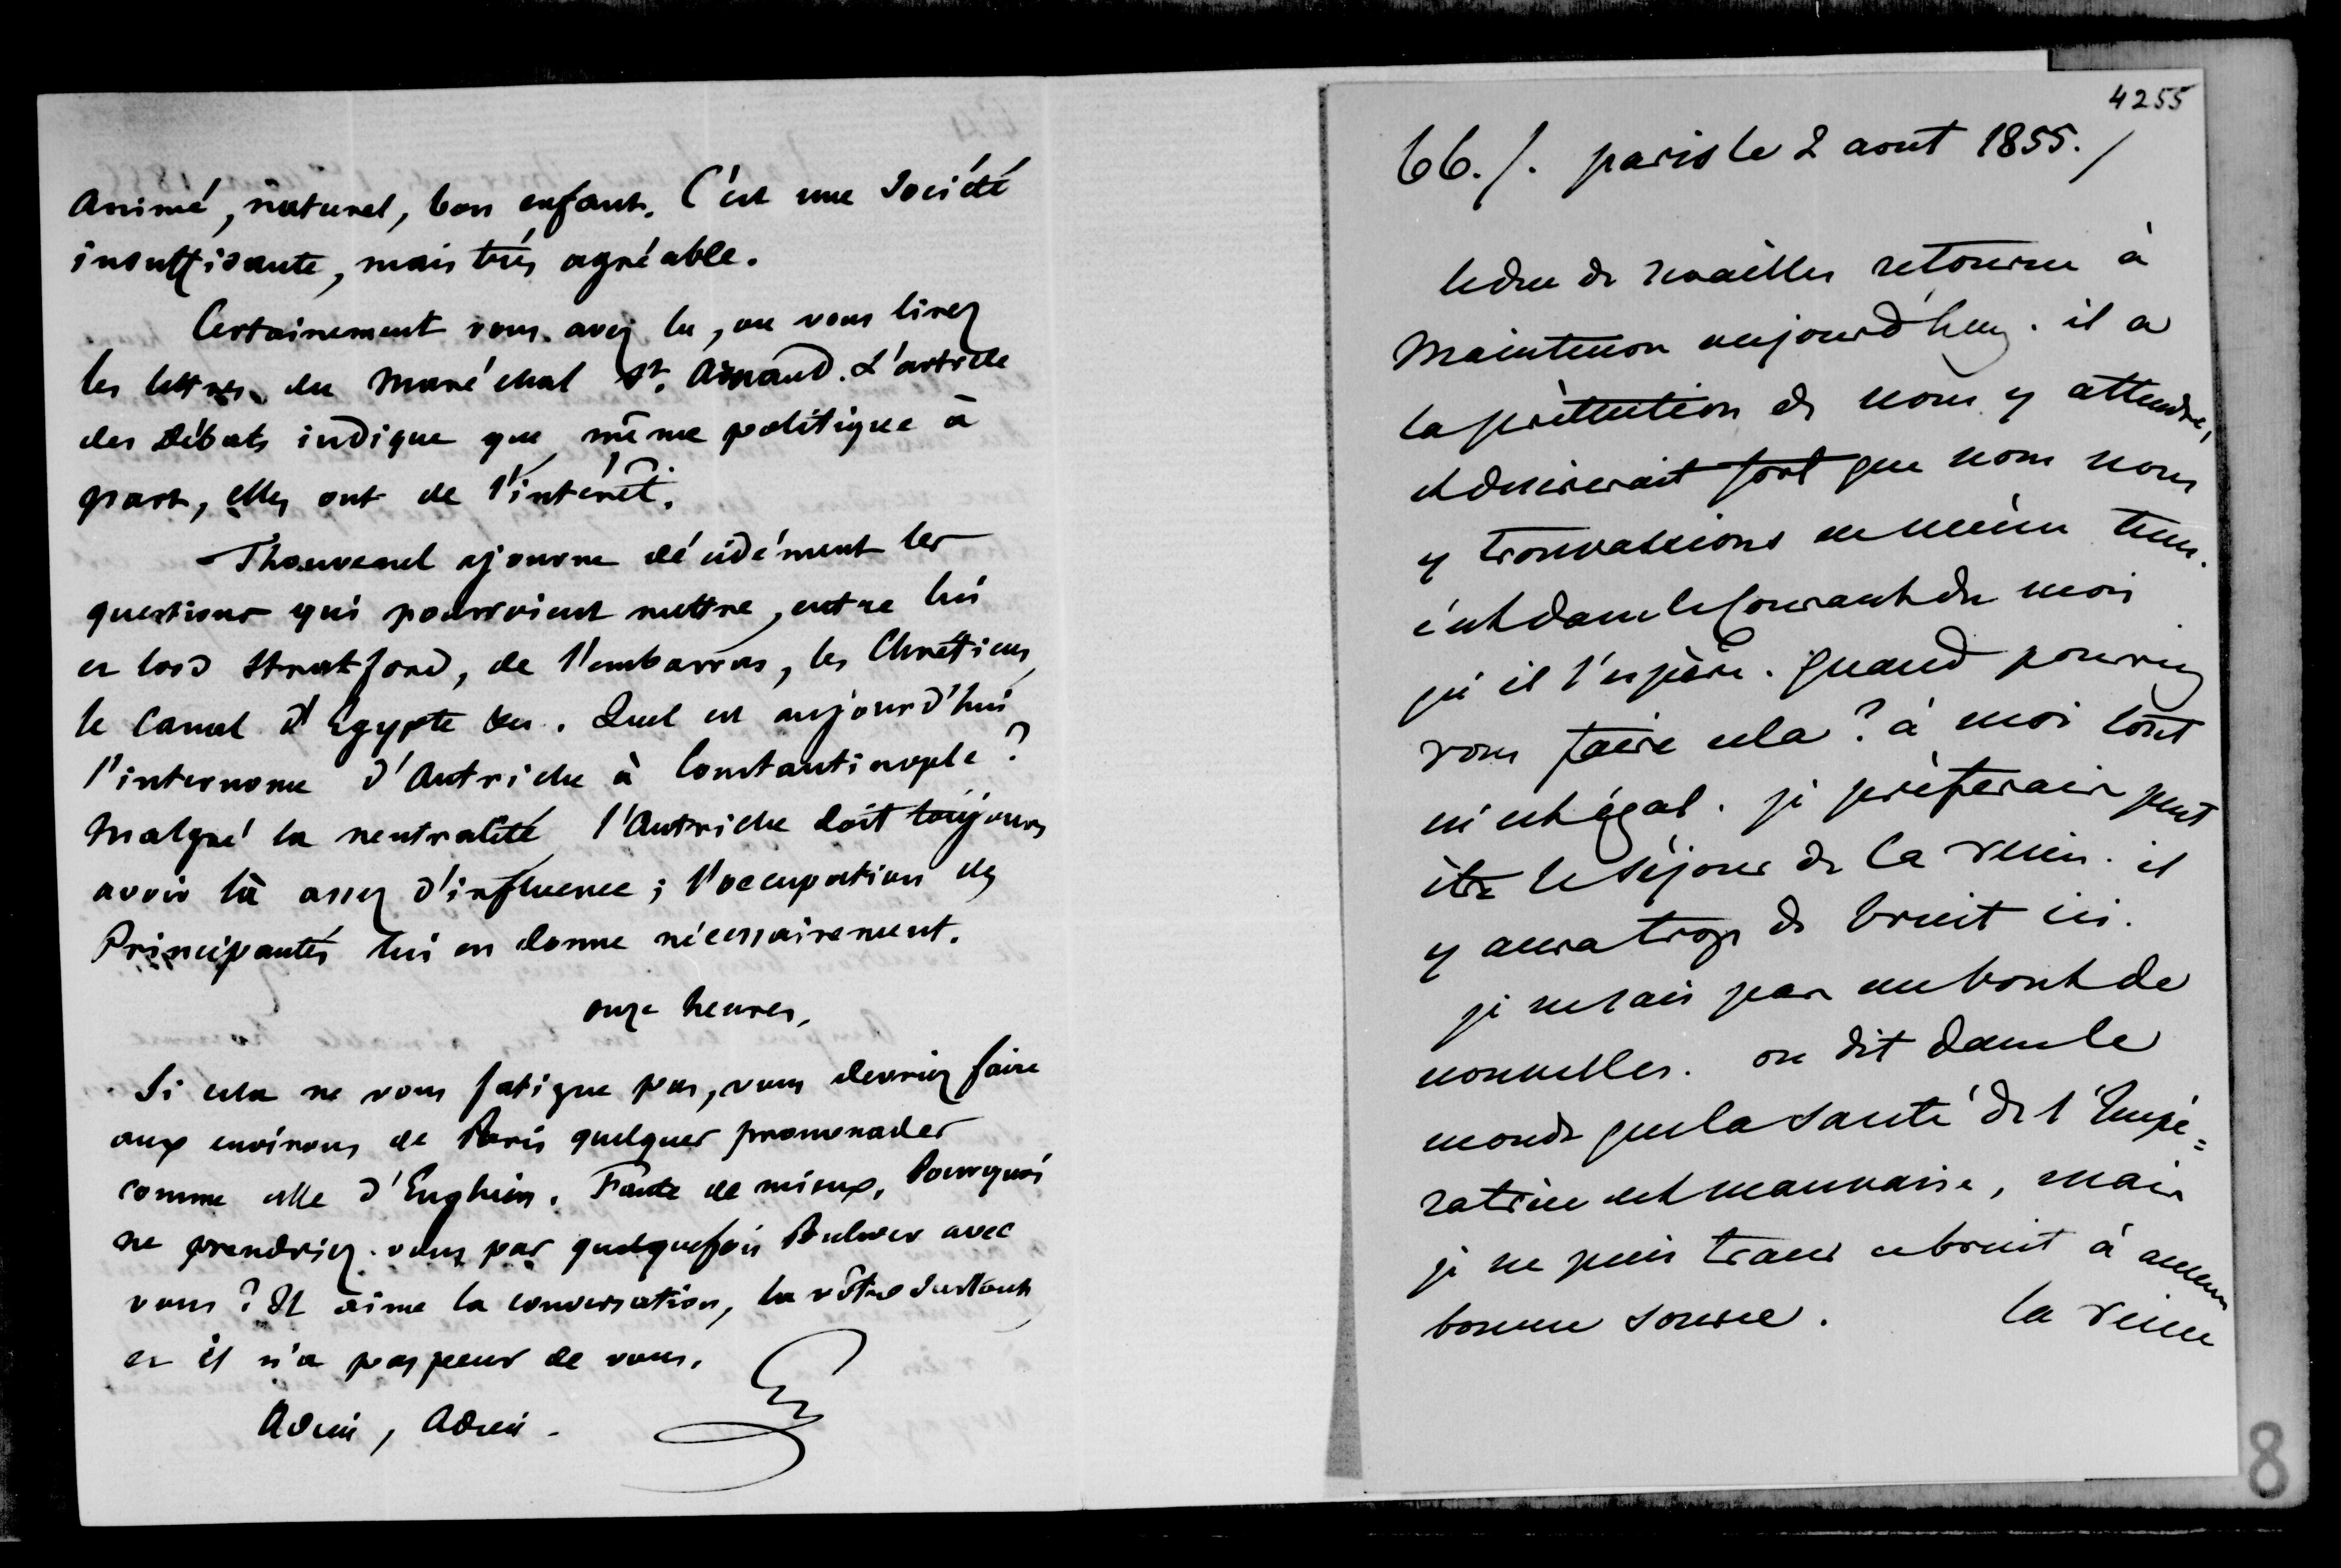 animé, naturel, bon enfant. C'est une Société
insuffisante, mais très agréable.
Certainement vous avez lu, ou vous lirez
les lettres du Maréchal St. Arnaud. L'article
des Débats indique que, même politique à
part, elles ont de l'intérêt.
Thouvenel ajourne décidément les
questions qui pourroient mettre, entre lui
et lord Stratford, de l'embarras, les Chrétiens,
le Canal d'Egypte &c. Quel est aujourd'hui
l'internonce d'Autriche à Constantinople ?
Malgré la neutralité, l'Autriche doit toujours
avoir là assez d'influence ; l'occupation des
Principautés lui en donne nécessairement.
onze heures,
Si cela ne vous fatigue pas, vous devriez faire
aux environs de Paris quelques promenades
comme celle d'Enghien. Faute de mieux. Pourquoi
ne prendriez-vous pas quelquefois Bulwer avec
vous ? Il aime la conversation, la vôtre surtout,
et il n'a pas peur de vous.
Adieu, Adieu.
4255
66./. paris le 2 aout 1855./
le duc de Noailles retourne à
Maintenon aujourd'huy. il a
la prétention de nous y attendre,
et desirerait fort que nous nous
y trouvassions en même tems.
c'est dans le courant du mois
qu'il l'espère. quand pourriez
vous faire cela ? à moi tout
m'est égal. je préferais peut
être le séjour de la reine. il
y aura trop de bruit ici.
je ne sais pas un bout de
nouvelles. on dit dans le
monde que la santé de l'Impé=
ratrice est mauvaise, mais
je ne puis tracer ce bruit à aucune
bonne source. la reine
8